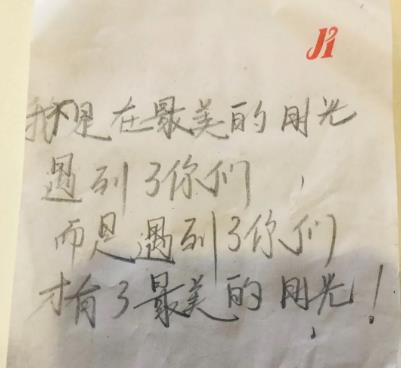 我不是在最美的时光
遇到了你们，
而是遇到了你们
才有了最美的时光！